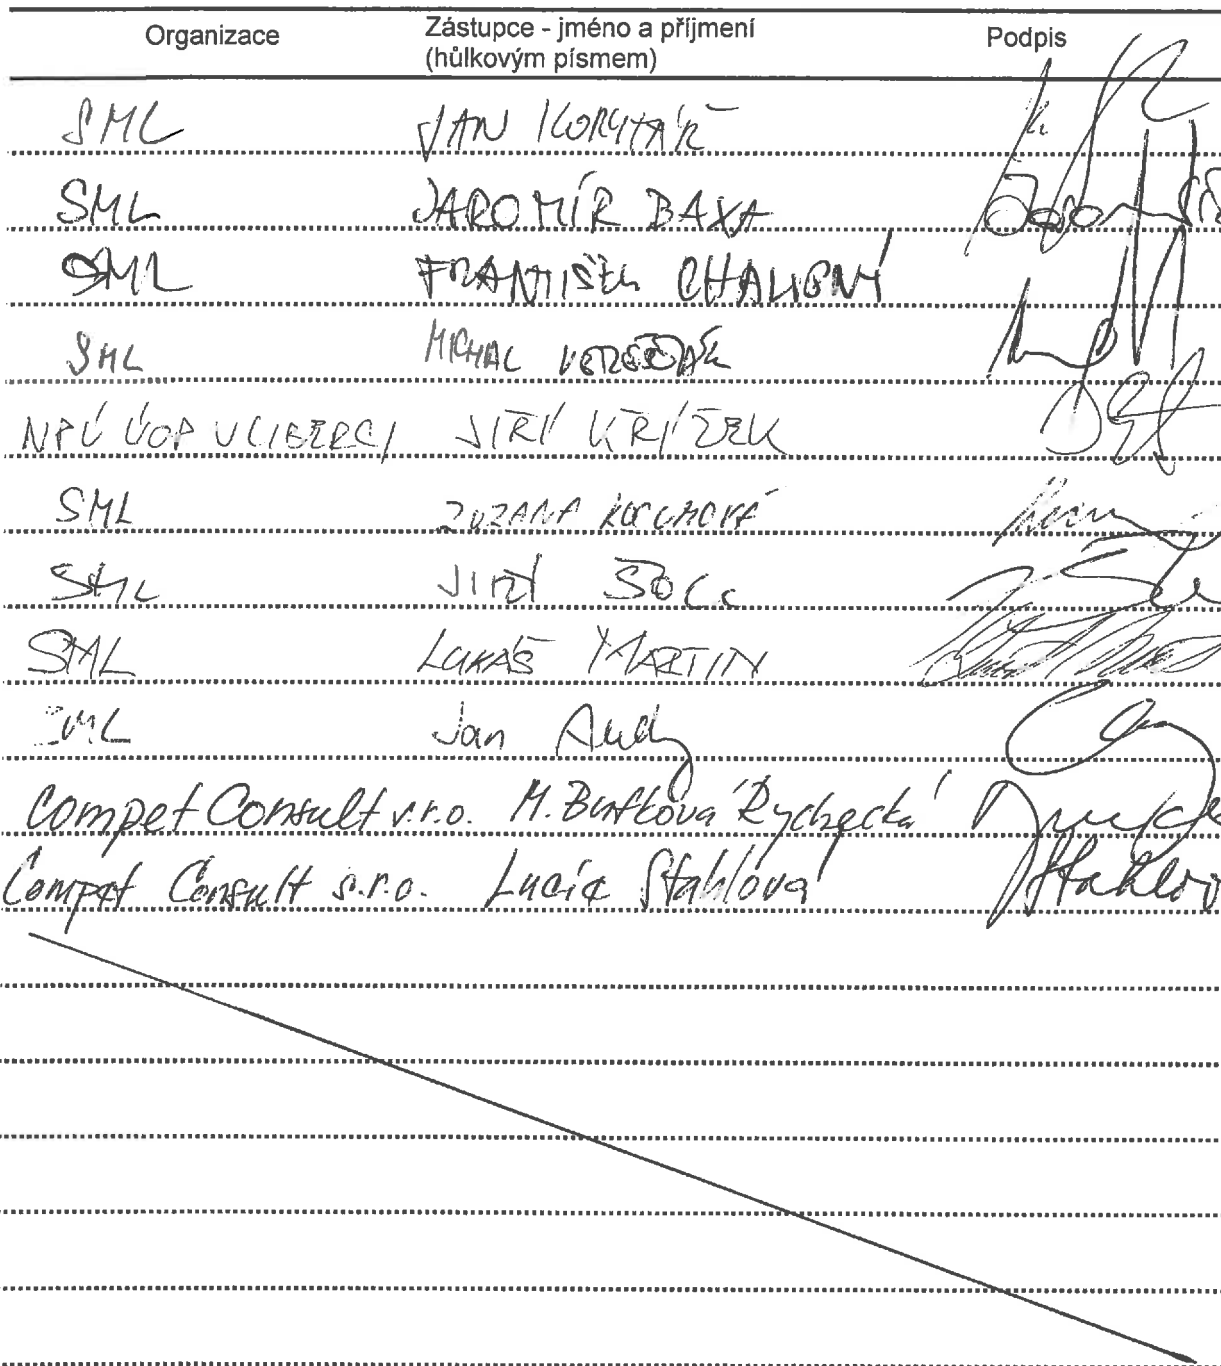 Organizace Zástupce - jméno a příjmení Podpis
(hůlkovým písmem)
SML JAN KORYTÁŘ
SML JAROMÍR BAXA
SML FRANTIŠEK CHALUPNÝ
SML MICHAL
NPÚ ÚOP V LIBERCI JIŘÍ KŘÍŽEK
SML ZUZANA KOCHOVÁ
SML JIŘÍ ŠOLC
SML LUKÁŠ MARTIN
SML Jan Audy
Compet Consult s.r.o. M. Rychecká
Compet Consult s.r.o. Lucie Stahlová